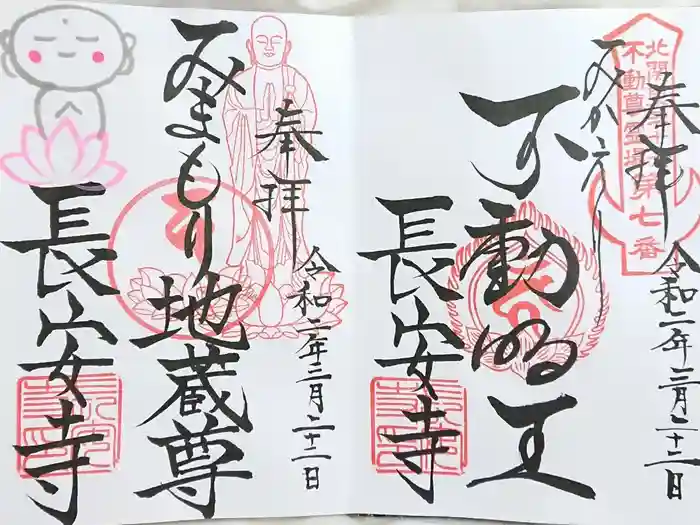 奉拝
令和二年二月二十二日
みかえり
不動明王
長安寺
不動尊霊場第七番
奉拝
令和二年二月二十二日
みまもり地蔵尊
長安寺